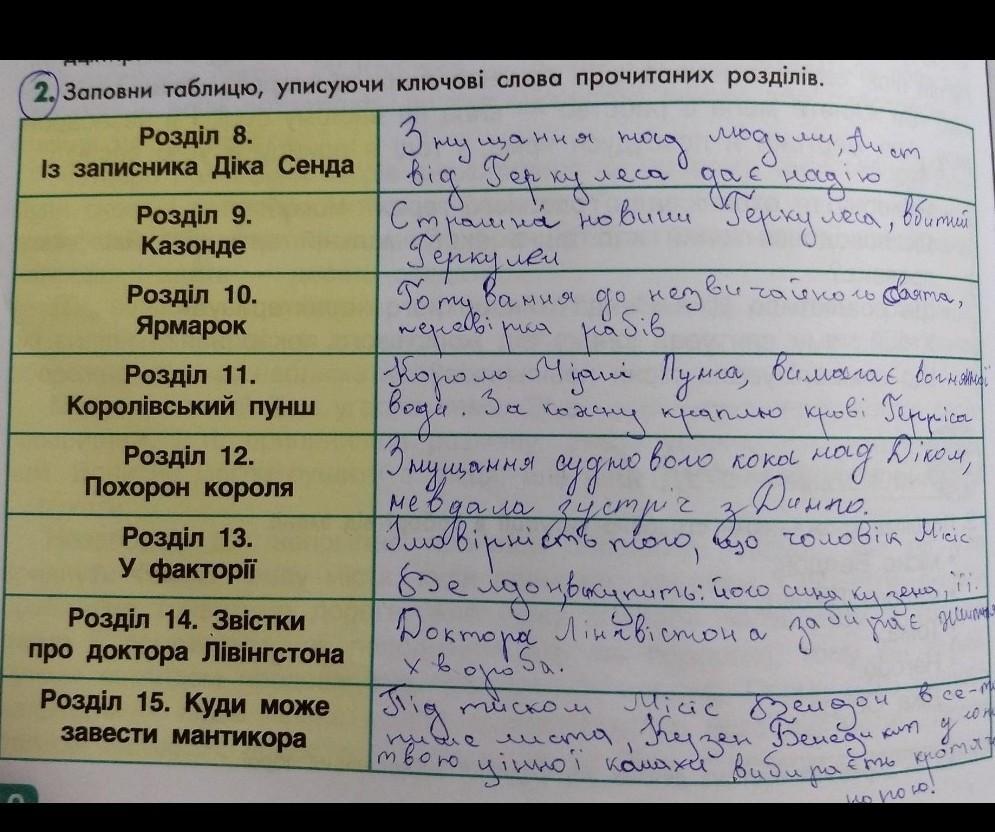 2. Заповни таблицю, уписуючи ключові слова прочитаних розділів.
Розділ 8.
Із записника Діка Сенда
Знущання над людьми, Лист
від Геркулеса дає надію
Розділ 9.
Казонде
Страшні новини Геркулеса, вбитий
Геркулес
Розділ 10.
Ярмарок
Готування до незвичайного свята,
перевірка рабів
Розділ 11.
Королівський пунш
Король Муані Лунга, вимагає вогняної
води За кожну краплю крові Герріса
Розділ 12.
Похорон короля
Знущання суднового кока над Діком,
невдала зустріч з Динго.
Розділ 13.
У факторії
Імовірність того, що чоловік Місіс
Велдон викупить: його сина, кузена, її.
Розділ 14. Звістки
про доктора Лівінгстона
Доктора Лінквістона забирає життя
хвороба.
Розділ 15. Куди може
завести мантикора
Під тиском Місіс Велдон все-т
пише листа, Кузен Бенедикт у гон
твою цінної комахи вибираєть кротяч
норою!